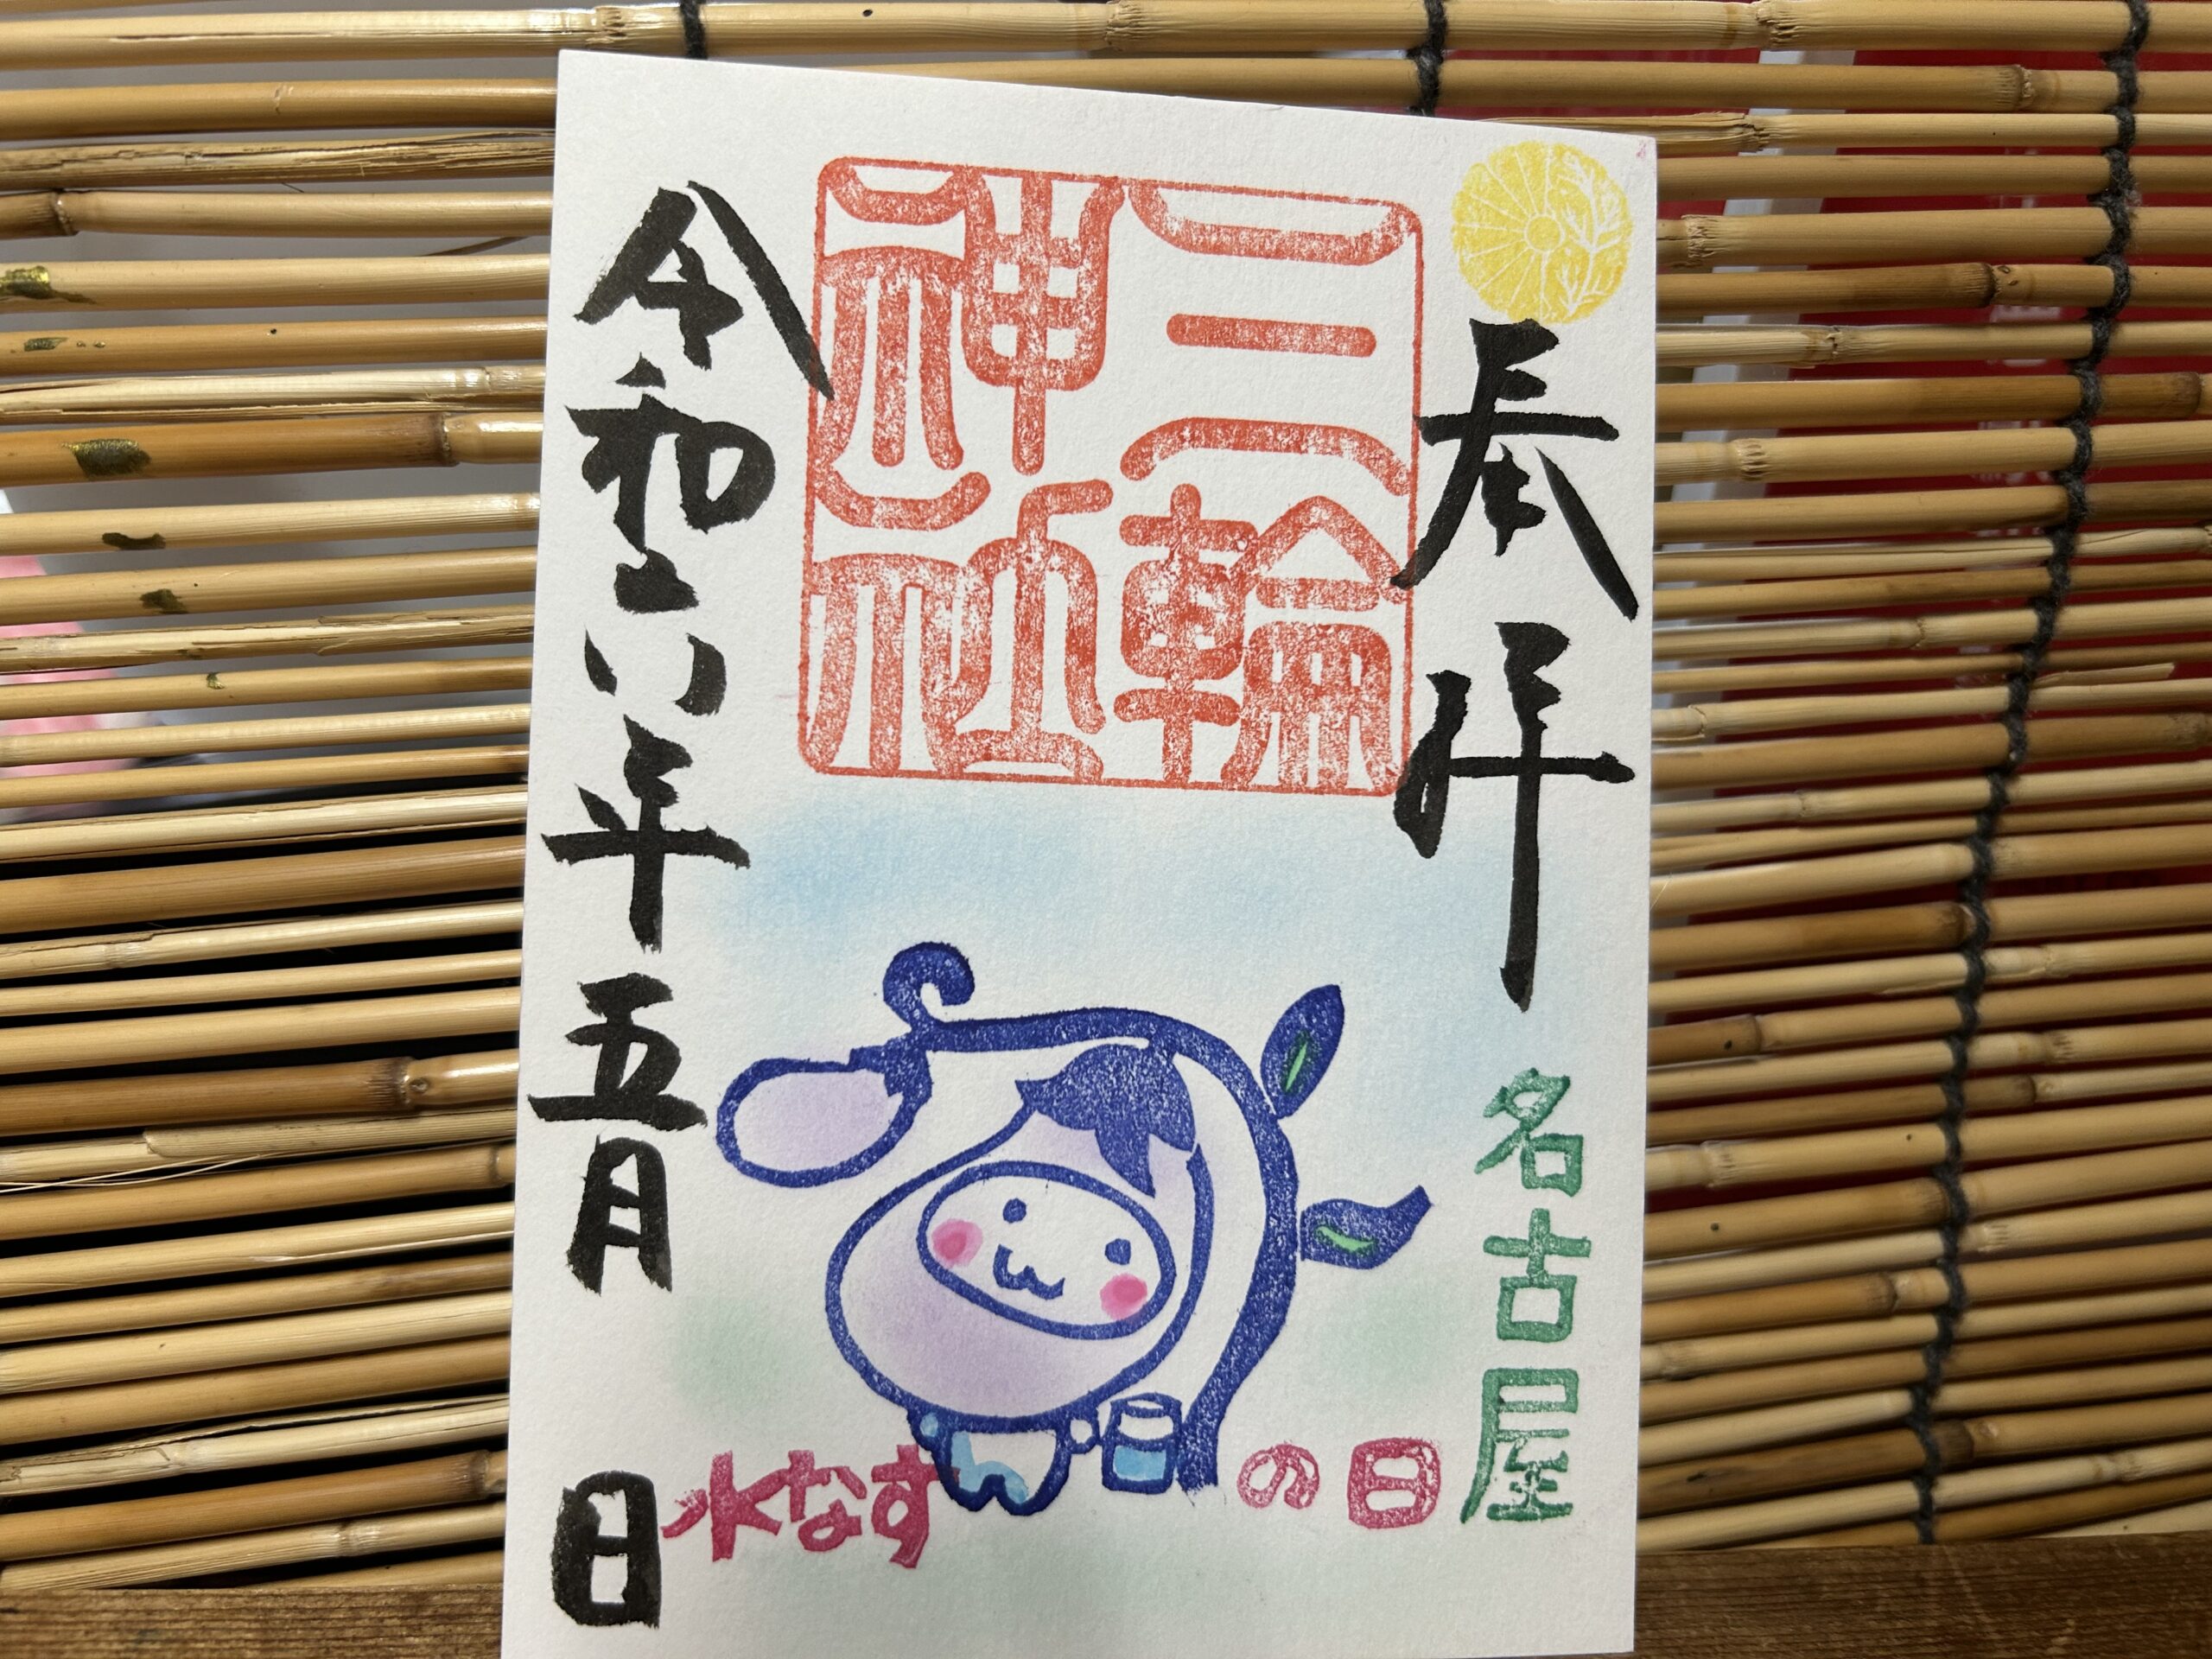 奉拝
三輪
神社
名古屋
水なすの日
令和六年五月 日